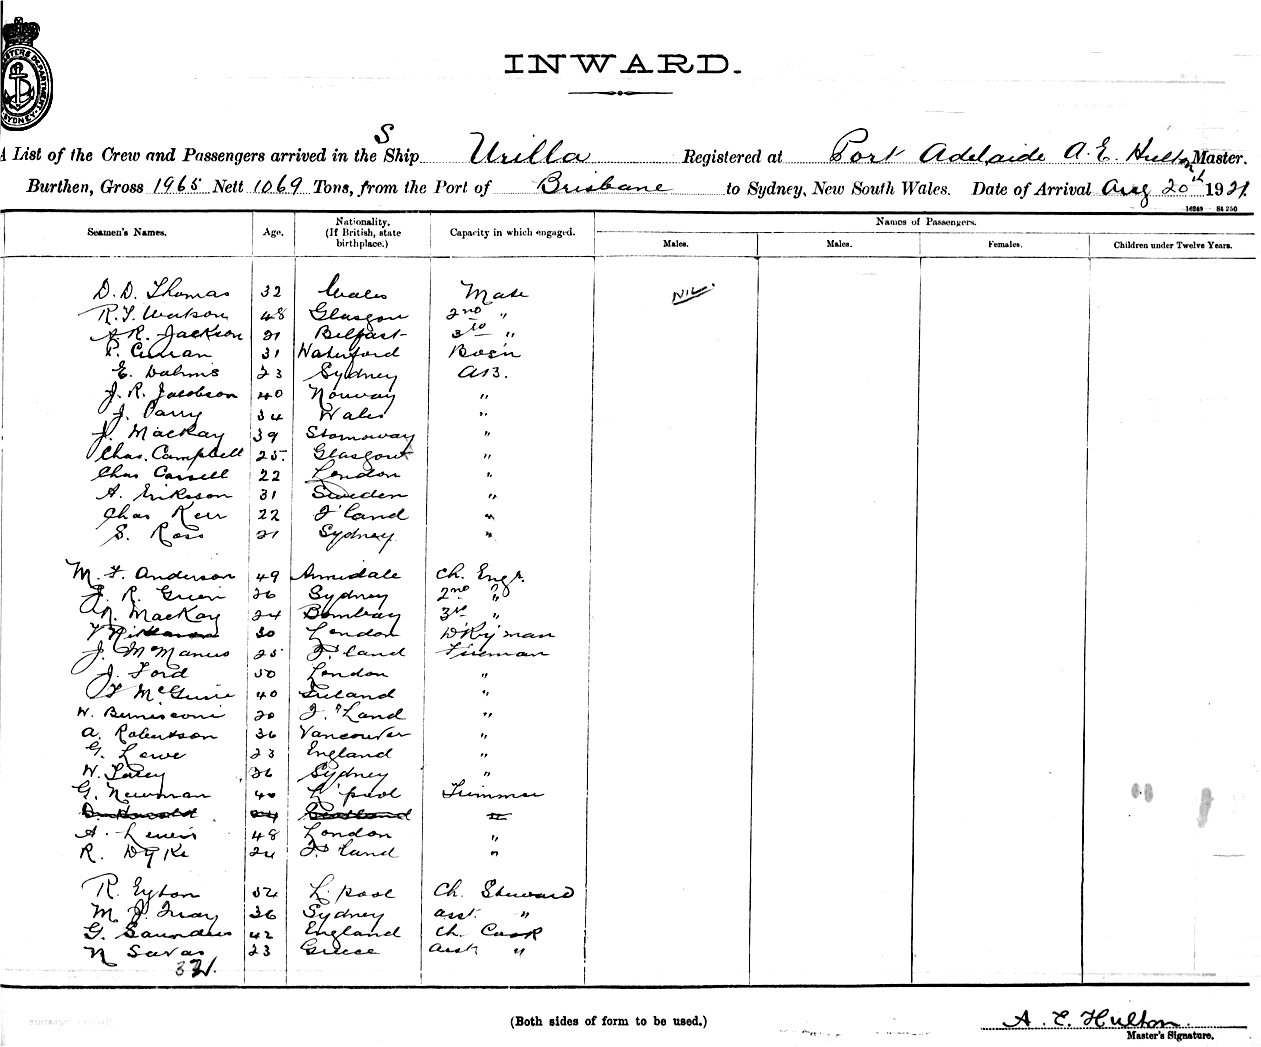 INWARD.
A List of the Crew and Passengers arrived in the S Ship Urilla Registered at Port Adelaide A. E. Hulton Master.
Burthen, Gross 1965 Nett 1069 Tons, from the Port of Brisbane to Sydney, New South Wales. Date of Arrival Aug 20th 1921.
16249 84 250
Seamen's Names. Age. Nationality. (If British, state birthplace.) Capacity in which engaged. Names of Passengers.
Males. Males. Females. Children under Twelve Years.
D. D. Thomas 32 Wales Mate Nil.
R. Y. Watson 48 Glasgow 2nd "
A R. Jackson 21 Belfast 3rd "
P. Curran 31 Waterford Bos'n
E. Dahms 23 Sydney AB.
J. R. Jacobson 40 Norway "
J. Parry 34 Wales "
J. MacKay 39 Stornoway "
Chas. Campbell 25 Glasgow "
Chas Cassell 22 London "
A. Eriksson 31 Sweden "
Chas Kerr 22 F'land "
S. Ross 21 Sydney "
M. F. Anderson 49 Armidale Ch. Engr.
J. R. Green 26 Sydney 2nd "
N. MacKay 24 Bombay 3rd "
30 London D'Ky'man
J. McManus 25 land Fireman
J. Ford 50 London "
McGuire 40 Ireland "
W. Bernisconi 20 Land "
A. Robertson 36 Vancouver "
G. Lowe 23 England "
W. 26 Sydney "
G. Newman 40 L'pool Trimmer
Scotland "
A. Lewis 48 London "
R. Dyke 24 land "
R. Eyton 52 L. pool Ch. Steward
M J. 36 Sydney asst. "
G. Saunders 42 England Ch. Cook
N Savas 23 Greece Asst "
32/.
(Both sides of form to be used.)
A. E. Hulton.
Master's Signature.